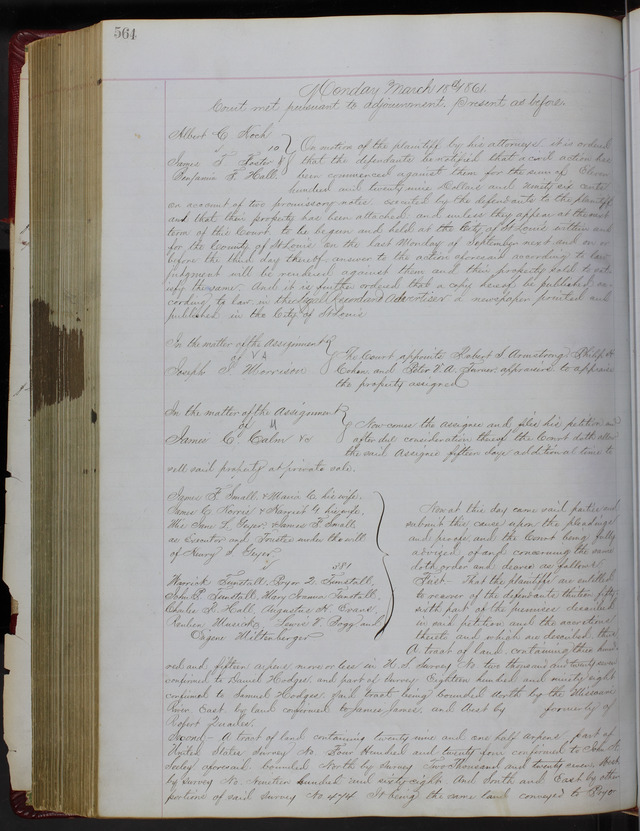 564
Monday March 18th 1861
Court met pursuant to adjournment. Present as before
Albert C. Koch
v 10
James T. Foster &
Benjamin F. Hall
On motion of the plaintiff by his attorneys it is ordered
that the defendants be notified that a civil action has
been commenced against them for the sum of Eleven
hundred and twenty nine Dollars and ninety six cents
on account of two promissory notes executed by the defendants to the plaintiff
and that their property has been attached and unless they appear at the next
term of this Court to be begun and held at the City of St Louis within and
for the County of St Louis on the last Monday of September next and on or
before the third day thereof answer to the action aforesaid according to law
judgment will be rendered against them and their property sold to sat
isfy the same. And it is further ordered that a copy hereof be published ac
cording to law in the Advertiser a newspaper printed and
published in the City of St Louis
In the matter of the Assignment
of
Joseph S. Morrison
The Court appoints Robert S Armstrong Philip
Cohen and Peter V. A. appraisers to appraise
the property assigned
In the matter of the Assignment
of
James C. &c
Now comes the assignee and files his petition and
after due consideration thereof the Court doth allow
the said Assignee fifteen days additional time to
sell said property at private sale.
James F. Small & Maria C. his wife,
James C. Norris & Harriet G. his wife,
L. Geyer, & James F. Small
as Executor and Trustee under the will
of Henry S Geyer
v 381
Warrick Tunstall, Pryor Q. Tunstall,
John P. Tunstall, Mary Tunstall,
Charles R. Hall, Augustus H. Evans,
Reuben Musick, Lewis V. Bogy and
Eugene Miltenberger
Now at this day came said parties and
submit this cause upon the pleadings
and proofs and the Court being fully
advised of and concerning the same
doth order and decree as follows
First — That the plaintiffs are entitled
to recover of the defendants the one fifty
sixth part of the premises described
in said petition and the accretions
thereto and which are described thus
A tract of land containing three hund
red and fifteen arpens more or less in U. S. Survey No two thousand and twenty seven
confirmed to Daniel Hodges and part of Survey Eighteen hundred and ninety eight
confirmed to Samuel Hodges, said tract being bounded North by the Missouri
River East by land confirmed to James James, and West by formerly of
Robert Quarles.
Second — A tract of land containing twenty nine and one half arpens, part of
United States Survey No. Four Hundred and twenty four confirmed to John
Seeley aforesaid, bounded North by Survey Two Thousand and twenty seven, West
by Survey No. Nineteen hundred and sixty eight And South and East by other
portions of said Survey No 424 It being the same land conveyed to Pryor